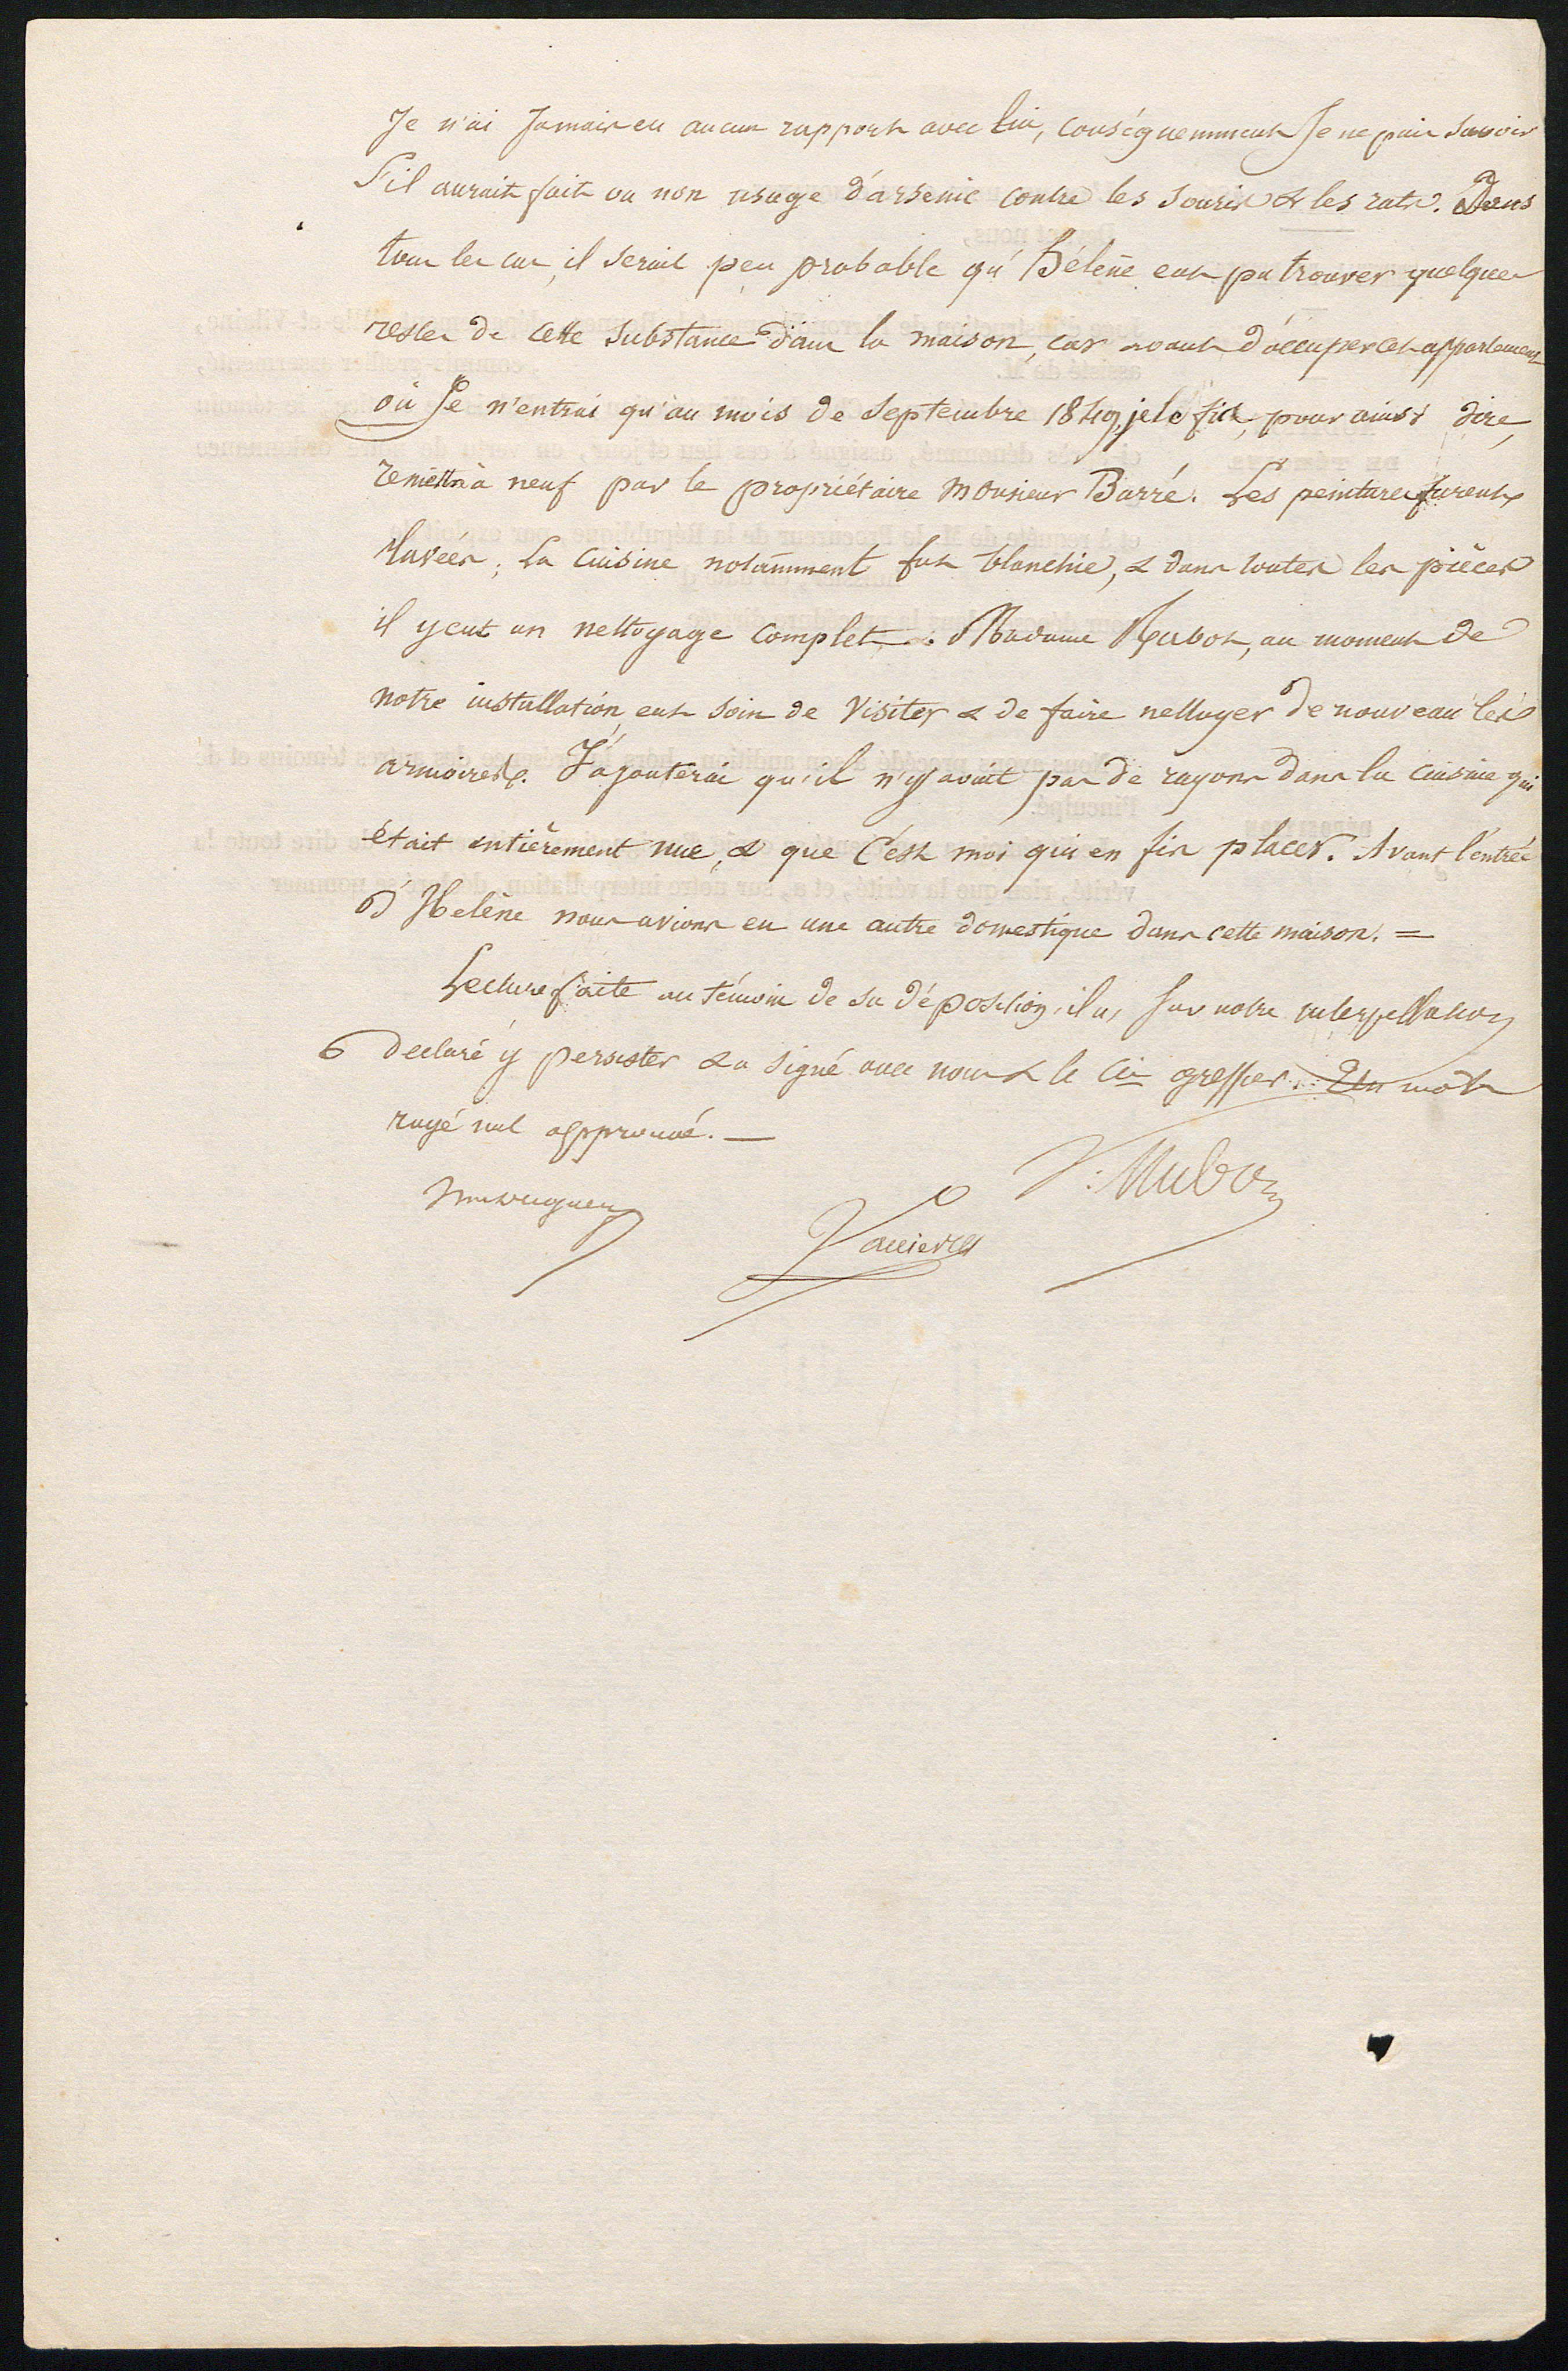 Je n'ai Jamais eu aucun rapport avec lui, conséquemment Je ne puis savoir
S'il aurait fait ou non usage d'arsenic contre les souris & les rats. Dans
tous les cas, il serait peu probable qu'Hélène eut pu trouver quelques
restes de cette substance dans la maison, car avant d'occuper cet appartement
où Je n'entrai qu'au mois de Septembre 1849, je le fis, pour ainsi dire,
remettre à neuf par le propriétaire Monsieur Barré. Les peintures furent
lavées; la cuisine notamment fut blanchie, & dans toutes les pièces
il y eut un nettoyage complet. Madame Rabot, au moment de
notre installation, eut soin de visiter & de faire nettoyer de nouveau les
armoires. J'ajouterai qu'il n'y avait pas de rayons dans la cuisine qui
était entièrement nue, & que C'est moi qui en fis placer. Avant l'entrée
d'Helène nous avions eu une autre domestique dans cette maison. =
Lecture faite au témoin de sa déposition, il a, sur notre interpellation
declaré y persister & a signé avec nous & le Cis greffier. Un mot
rayé nul approuvé. —
Th: Rabot
Vannier